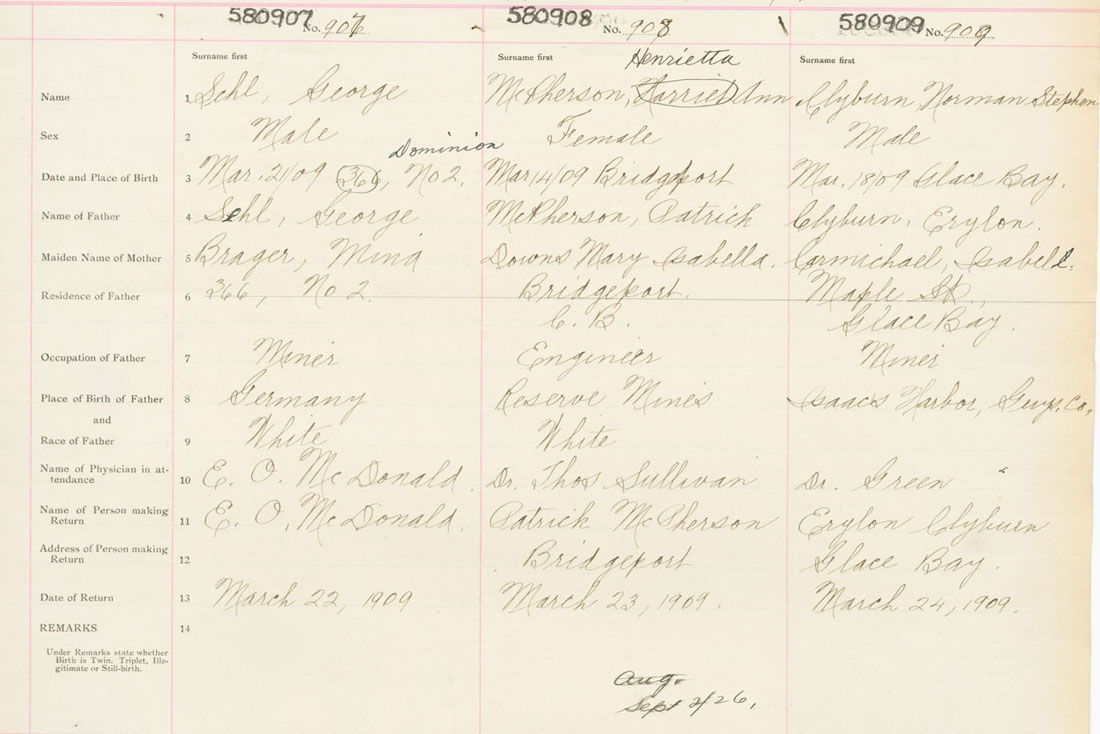 580907 No. 907 580908 No. 908 580909 No. 909
Surname first Surname first Henrietta Surname first
Name 1 Sehl, George McPherson, Harriet Ann Clyburn, Norman Stephen
Sex 2 Male Female Male
Dominion
Date and Place of Birth 3 Mar. 21/09 366, No 2. Mar 14/09 Bridgeport Mar. 18/09 Glace Bay.
Name of Father 4 Sehl, George McPherson, Patrick Clyburn, Erylon.
Maiden Name of Mother 5 Brager, Mina Downs Mary Isabella. Carmichael, Isabell.
Residence of Father 6 366, No 2. Bridgeport. Maple St.,
C. B. Glace Bay.
Occupation of Father 7 Miner Engineer Miner
Place of Birth of Father 8 Germany Reserve Mines Isaacs Harbor, Guys. Co.
and
Race of Father 9 White White
Name of Physician in at-
tendance 10 E. O. McDonald. Dr. Thos Sullivan Dr. Green
Name of Person making
Return 11 E. O. McDonald. Patrick McPherson Erylon Clyburn
Address of Person making
Return 12 Bridgeport Glace Bay.
Date of Return 13 March 22, 1909 March 23, 1909. March 24, 1909.
REMARKS 14
Under Remarks state whether
Birth is Twin, Triplet, Ille-
gitimate or Still-birth.
Aug.
Sept 2/26,